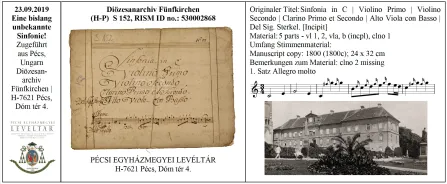 23.09.2019
Eine bislang
unbekannte
Sinfonie!
Zugeführt
aus Pécs,
Ungarn
Diözesan-
archiv
Fünfkirchen |
H-7621 Pécs,
Dóm tér 4.
PÉCSI EGYHÁZMEGYEI
LEVÉLTÁR
Diözesanarchiv Fünfkirchen
(H-P) S 152, RISM ID no.: 530002868
Sinfonia in C
Violino Primo
Violino Secondo
Clarino Primo et Secondo
Alto Viola con Basso
PÉCSI EGYHÁZMEGYEI LEVÉLTÁR
H-7621 Pécs, Dóm tér 4.
Originaler Titel:Sinfonia in C | Violino Primo | Violino
Secondo | Clarino Primo et Secondo | Alto Viola con Basso |
Del Sig. Sterkel. [Incipit]
Material: 5 parts - vl 1, 2, vla, b (incpl), clno 1
Umfang Stimmenmaterial:
Manuscript copy: 1800 (1800c); 24 x 32 cm
Bemerkungen zum Material: clno 2 missing
1. Satz Allegro molto